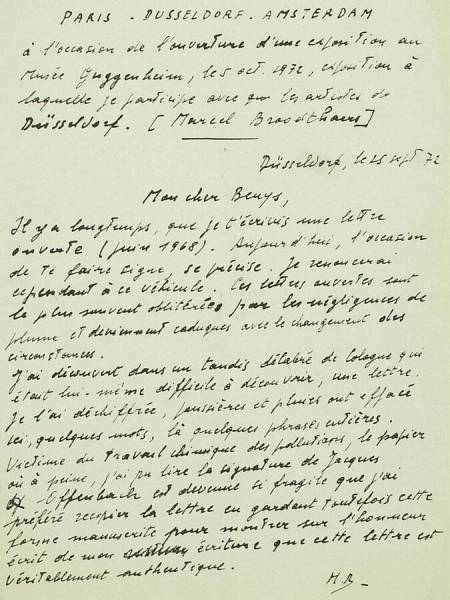 PARIS - DUSSELDORF - AMSTERDAM
à l'occasion de l'ouverture d'une exposition au
Musée Guggenheim, le 5 oct. 1972, exposition à
laquelle je participe avec les artistes de
Düsseldorf. [Marcel Broodthaers]
Düsseldorf, le 25 sept 72
Mon cher Beuys,
Il y a longtemps, que je t'écrivis une lettre
ouverte (juin 1968). Aujourd'hui, l'occasion
de te faire signe, se précise. Je renoncerai
cependant à ce véhicule. Ces lettres ouvertes sont
le plus souvent oblitérées par les négligences de
plume et deviennent caduques avec le changement des
circonstances.
J'ai découvert dans un taudis délabré de Cologne qui
était lui-même difficile à découvrir, une lettre.
Je l'ai déchiffrée, poussières et pluies ont effacé
ici, quelques mots, là quelques phrases entières.
Victime du travail chimique des pollutions, le papier
où à peine, j'ai pu lire la signature de Jacques
Offenbach est devenu si fragile que j'ai
préféré recopier la lettre en gardant toutefois cette
forme manuscrite pour montrer sur l'honneur
écrit de mon écriture que cette lettre est
véritablement authentique.
M.B-